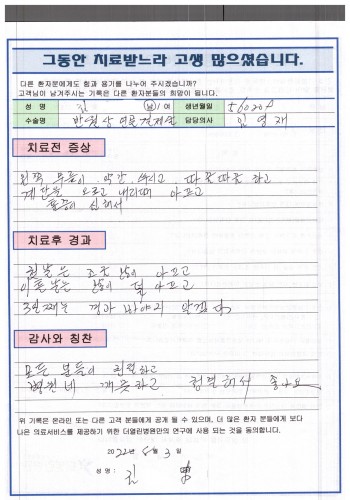 그동안 치료받느라 고생 많으셨습니다.
다른 환자분에게도 힘과 용기를 나누어 주시겠습니까?
고객님이 남겨주시는 기록은 다른 환자분들의 희망이 됩니다.
성 명 김 남 / 여 생년월일 560204
수술명 반월상 연골 절제술 담당의사 임영재
치료전 증상
왼쪽 무릎이 약간 쑤시고 따끔따끔 하고
계단을 오르고 내리때 아프고
통증이 심해서
치료후 경과
첫날은 조금 많이 아프고
이튿날은 많이 덜 아프고
3일째는 경과 봐야지 알겠다
감사와 칭찬
모든 분들이 친절하고
병원 네 깨끗하고 청결해서 좋아요
위 기록은 온라인 또는 다른 고객 분들에게 공개 될 수 있으며, 더 많은 환자 분들에게 보다
나은 의료서비스를 제공하기 위한 더열린병원만의 연구에 사용 되는 것을 동의합니다.
2022년 5월 3일
성명: 김